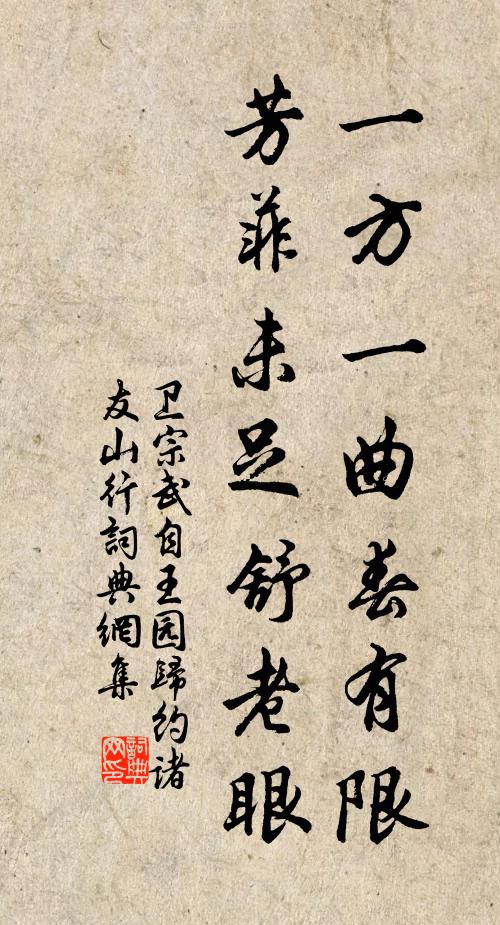 一方一曲春有限
芳菲未足舒老眼
卫宗武自王园歸约诸
友山行詞典網集
詞典
网印